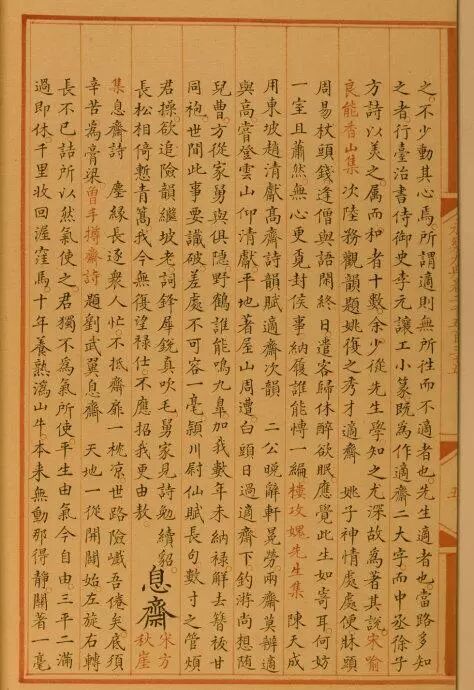 之。不少動其心焉所謂適則無所往而不適者也先生適者也當路多知
之者行臺治書侍御史李元讓工小篆既為作適齋二大字而中丞徐子
方詩以美之。屬而和者十數。余少從先生學知之尤深故為著其說。宋喻
良能香山集 次陸務觀韻題姚復之秀才適齋 姚子神情處處便牀頭
周易杖頭錢逢僧與語閑終日遣客歸休醉欲眠應覺此生如寄耳何妨
一室且蕭然無心更覓封侯事納履誰能愽一編樓攻媿先生集 陳天成
用東坡趙清獻高齋詩韻賦適齋次韻 二公晚辭軒冕勞兩齋莫辨適
與高。嘗登雲山仰清獻。平地著屋山周遭。白頭日過適齋下釣游尚想随
兒曹。方從家舅與俱隱野鶴誰能鳴九皐加我數年未納祿解去簪紱甘
同袍。世間此事要識破。差處不可容一毫潁川尉仙賦長句。數寸之管煩
君操。欲追險韻繼坡老詞鋒犀銳真吹毛舅家見詩勉續貂。
長松相倚慙青蒿我今無復望禄仕。不應招我更由敖
息齋
宋方
秋崖
集 息齋詩 塵緣長逐衆人忙。不抵齋扉一枕凉世路險巇吾倦矣底須
辛苦為膏粱曾丰撙齋詩題劉武翼息齋 天地一從開闢始左旋右轉
長不已詰所以然氣使之。君獨不為氣所使。平生由氣今自由。三平二滿
過即休千里收回渥窪馬。十年養熟溈山牛。本来無動那得靜。關著一毫